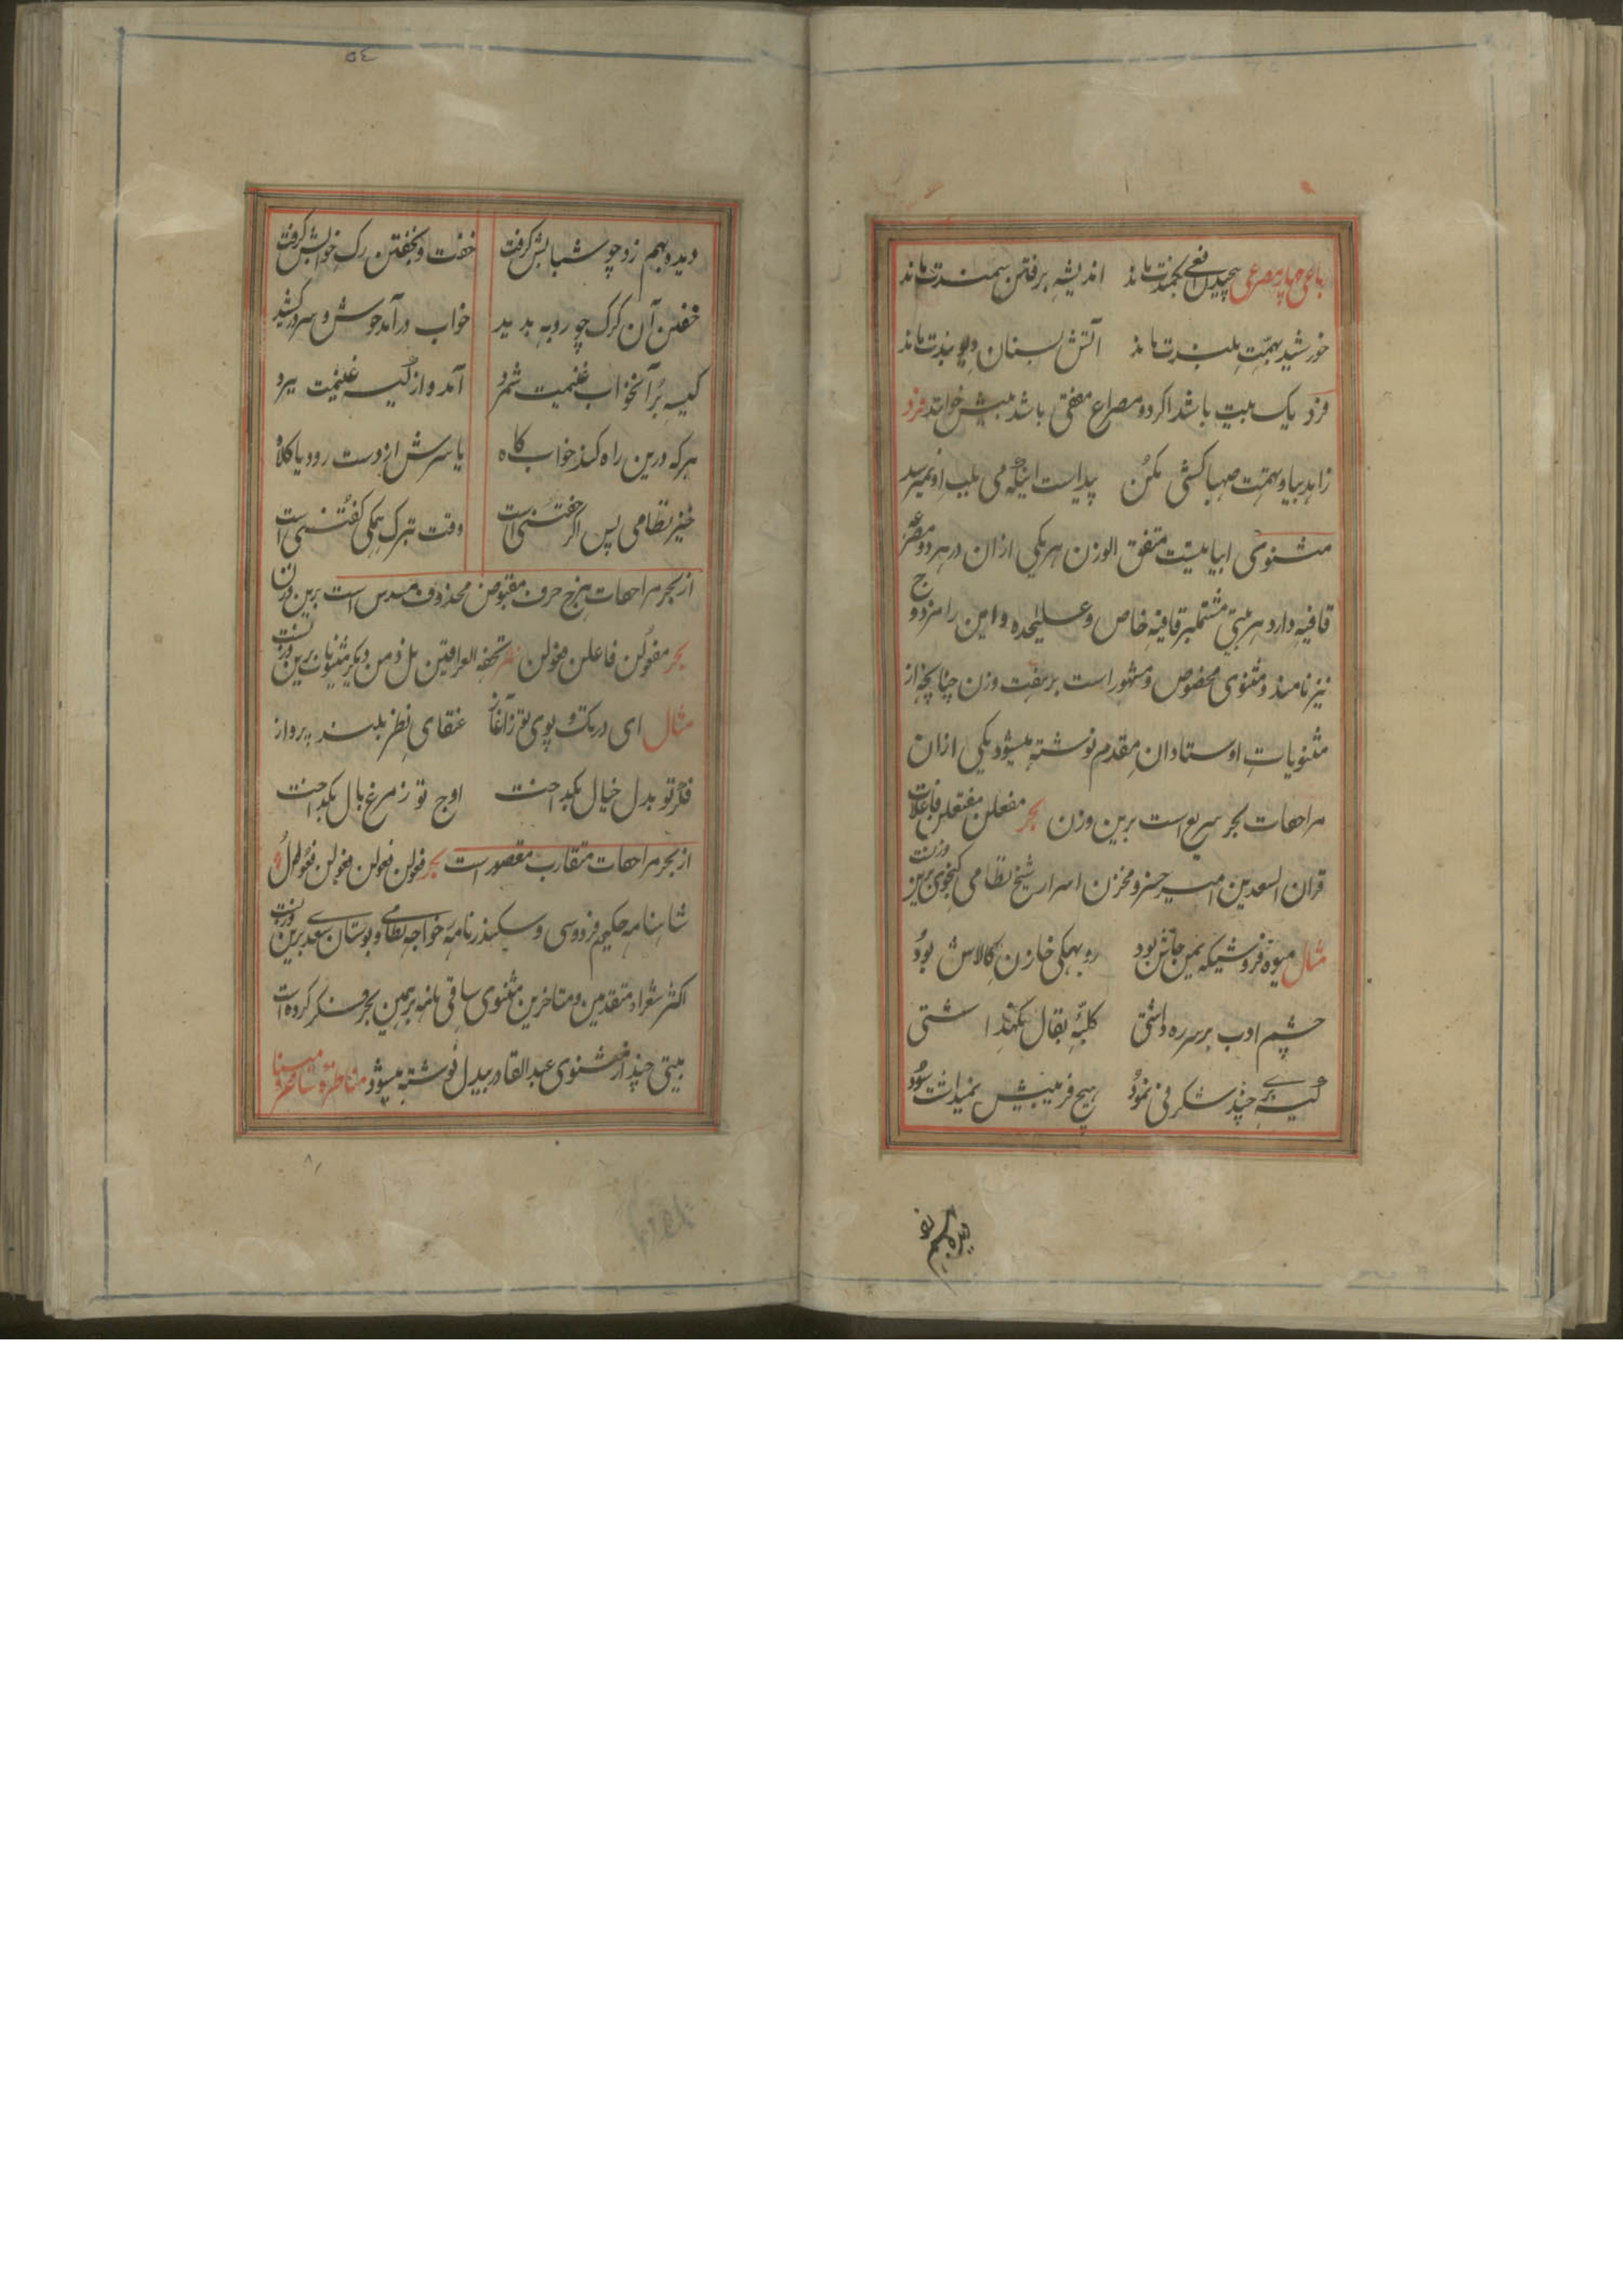 باعی چهار مصرعی پیچیدن افعی بکمندت ماند اندیشه برفتن سمندت ماند
خورشید بهمت بلندت ماند آتش بسنان دیو بندت ماند
فرد یک بیت باشد اکر دو مصراع مقفی باشد بیتش خوانند فرد
زاهد بیا و همت صهبا کشی مکن پیداست اینکه می بلب او نمیرسد
مثنوی ابیاتیست متفق الوزن هر یکی ازان در هر دو مصرعه
قافیه دارد هر بیتی مشتملبر قافیه خاص و علیحده و این را مزدوج
نیز نامند و مثنوی مخصوص و مشهور است بر هفت وزن چنانچه از
مثنویات اوستادان مقدم نوشته میشود یکی ازان
مراحفات بحر سریع است برین وزن بحر مفتعلن مفتعلن فاعلات
قران السعدین امیر خسرو مخزن اسرار شیخ نظامی کنجوی برین وزنست
مثال میوه فروشیکه یمن جاش بود روبهکی خازن کالاش بود
چشم ادب بر سر ره داشتی کلبه بقال نکهداشتی
کیسه برے چند شکرفی نمود هیچ فریبیش نمیداشت سود
دیده بهم زد چو شتابش کرفت
٥٤
دیده بهم زد چو شتابش کرفت خفت و بخفتن رک خوابش کرفت
خفتن آن کرک چو روبه بدید خواب درآمد خوش و سر درکشید
کیسه بر آنخواب غنیمت شمرد آمد و از کیسه غنیمت ببرد
هر که درین راه کند خواب کاه یا سرش از دست رود یا کلاه
خیز نظامی پس اکر خفتنی است وقت بترک همکی کفتنی است
از بحر مراحفات هزج حرف مقبوض محذوف مسدس است برین وزن
بحر مفعولن فاعلن فعولن تحفه العراقین نل و من دیکر مثنویات برین وزنست
مثال ای در تک و پوی تو ز آغاز عنقای نظر بلند پرواز
فکر تو بدل خیال بکداخت اوج تو ز مرغ بال بکداخت
از بحر مراحفات متقارب مقصور است بحر فعولن فعولن فعولن فعول
شاهنامه حکیم فردوسی و سکندر نامه خواجه نظامے و بوستان سعدے برین وزنست
اکثر شعراء متقدمین و متاخرین مثنوی ساقی نامه برهمین بحر فکر کرده‌است
بیتی چند از مثنوی عبدالقادر بیدل نوشته میشود مناظره